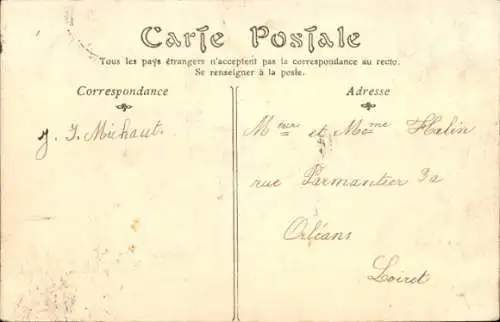 Carte Postale
Tous les pays étrangers n'acceptent pas la correspondance au recto.
Se renseigner à la poste.
Correspondance
Adresse
J. J. Michaut.
Msieur et Mme Halin
rue Parmentier 3a
Orléans
Loiret